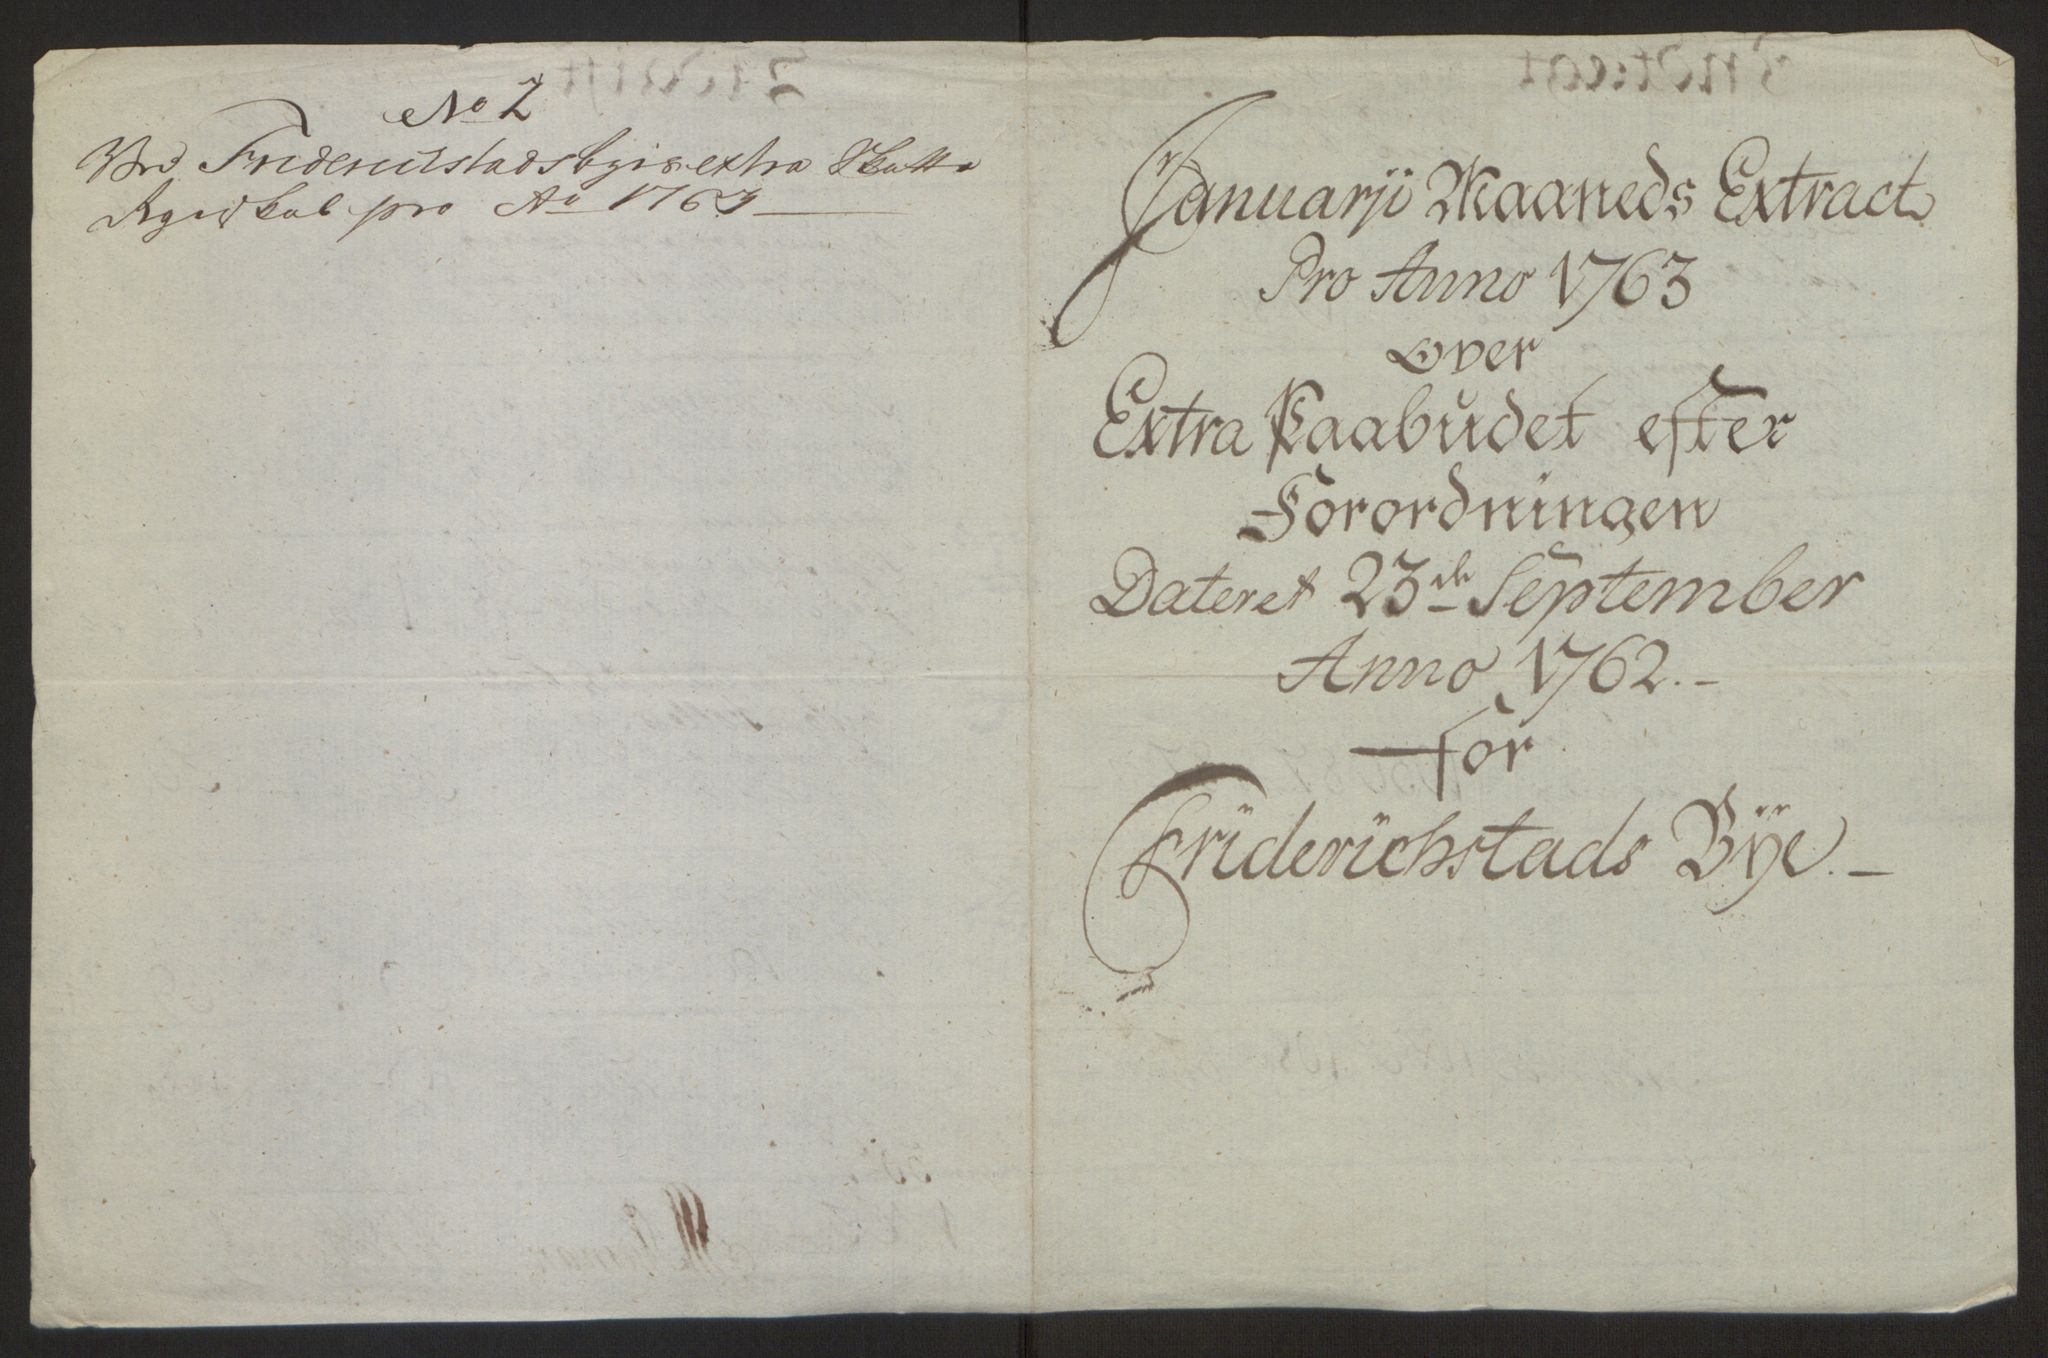 No 2
Ved Friderichstads byis extra Skatte
Regnskab pro Ao 1763
Januarji Maaneds Extract
Pro Anno 1763
Over
Extra Paabudet efter
Forordningen
Dateret 23de September
Anno 1762.-
For
Friderichstads Bÿe.-